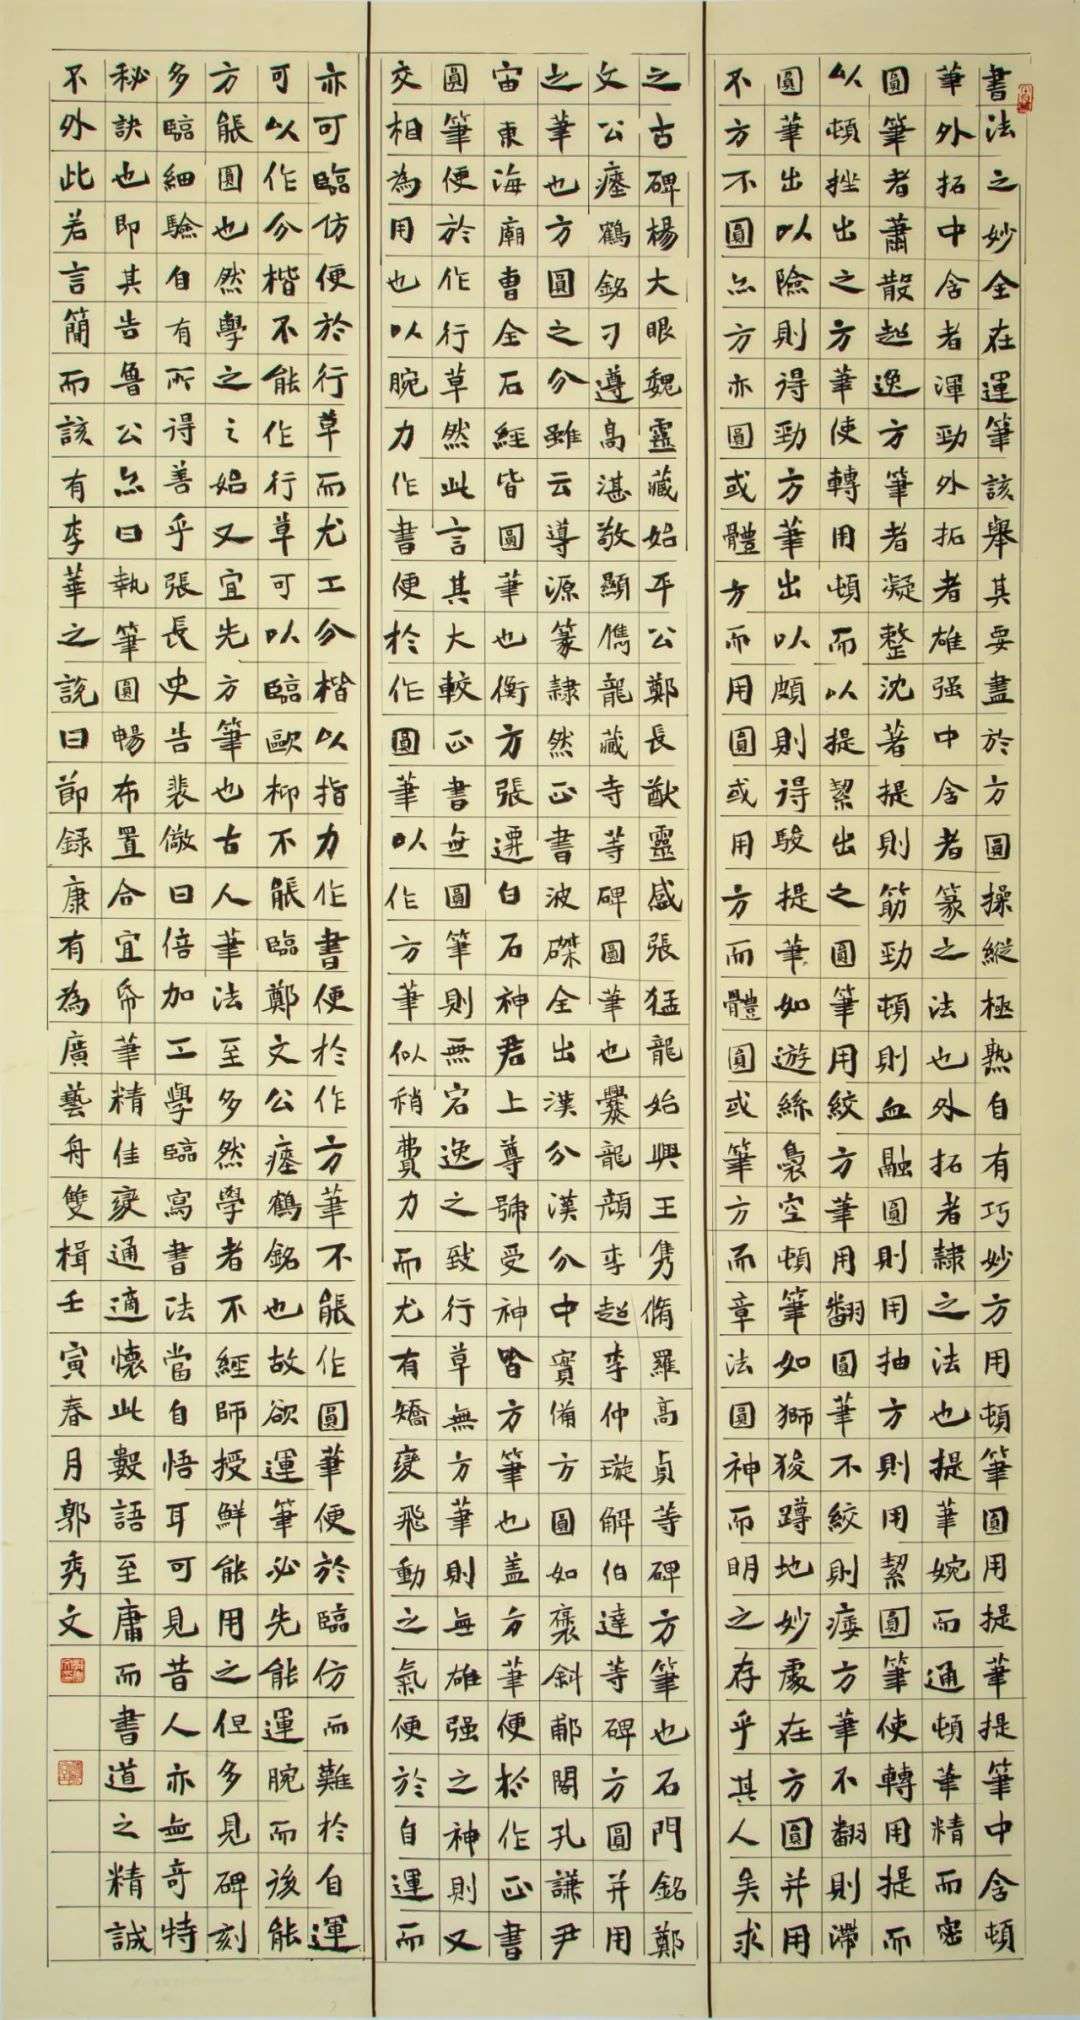 書法之妙全在運筆該舉其要盡於方圓操縱極熟自有巧妙方用頓筆圓用提筆提筆中含頓
筆外拓中含者渾勁外拓者雄强中含者篆之法也外拓者隸之法也提筆婉而通頓筆精而密
圓筆者蕭散超逸方筆者凝整沈著提則筋勁頓則血融圓則用抽方則用絜圓筆使轉用提而
以頓挫出之方筆使轉用頓而以提絜出之圓筆用絞方筆用翻圓筆不絞則痿方筆不翻則滯
圓筆出以險則得勁方筆出以頗則得駿提筆如遊絲裊空頓筆如獅狻蹲地妙處在方圓并用
不方不圓亦方亦圓或體方而用圓或用方而體圓或筆方而章法圓神而明之存乎其人矣求
之古碑楊大眼魏靈藏始平公鄭長猷靈感張猛龍始興王隽脩羅高貞等碑方筆也石門銘鄭
文公瘞鶴銘刁遵高湛敬顯儁龍藏寺等碑圓筆也爨龍顔李超李仲璇解伯達等碑方圓并用
之筆也方圓之分雖云導源篆隸然正書波磔全出漢分漢分中實備方圓如褒斜郙閣孔謙尹
宙東海廟曹全石經皆圓筆也衡方張遷白石神君上尊號受神皆方筆也盖方筆便於作正書
圓筆便於作行草然此言其大較正書無圓筆則無宕逸之致行草無方筆則無雄强之神則又
交相為用也以腕力作書便於作圓筆以作方筆似稍費力而尤有矯變飛動之氣便於自運而
亦可臨仿便於行草而尤工分楷以指力作書便於作方筆不能作圓筆便於臨仿而難於自運
可以作分楷不能作行草可以臨歐柳不能臨鄭文公瘞鶴銘也故欲運筆必先能運腕而後能
方能圓也然學之之始又宜先方筆也古人筆法至多然學者不經師授鮮能用之但多見碑刻
多臨細驗自有所得善乎張長史告裴儆曰倍加工學臨寫書法當自悟耳可見昔人亦無奇特
秘訣也即其告魯公亦曰執筆圓暢布置合宜紙筆精佳變通適懷此數語至庸而書道之精誠
不外此若言簡而該有李華之說曰節錄康有為廣藝舟雙楫壬寅春月郭秀文